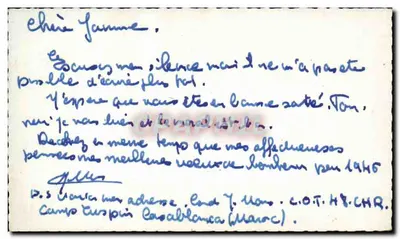 Chère Jeanne.
Excusez mon silence mais il ne m'a pas été
possible d'écrire plus tot.
J'espère que vous êtes en bonne santé.
je vais bien et le moral est bon.
en même temps que mes affectueuses
pensées mes meilleurs voeux de bonheur pour 1946
P.S mon adresse. C.O.T. 48. C.H.R.
Camp Casablanca (Maroc).